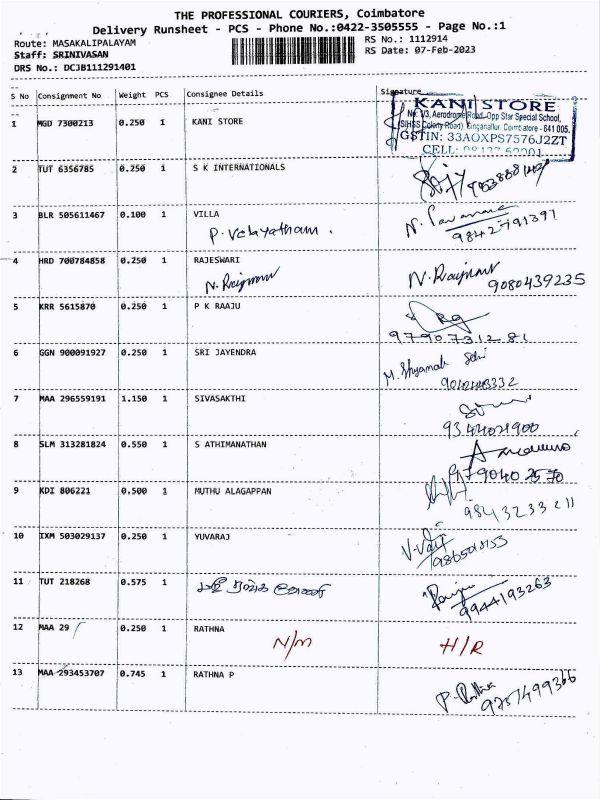 THE PROFESSIONAL COURIERS, Coimbatore
Delivery Runsheet - PCS - Phone No.:0422-3505555 - Page No.:1
Route: MASAKALIPALAYAM RS No.: 1112914
Staff: SRINIVASAN RS Date: 07-Feb-2023
DRS No.: DCJB111291401
S No Consignment No Weight PCS Consignee Details Signature
1 MGD 7300213 0.250 1 KANI STORE
KANI STORE
No: 1/3, Aerodrome Road, Opp Star Special School,
(SIHSS Colony Road), Singanallur, Coimbatore - 641 005.
GSTIN: 33AOXPS7576J2ZT
CELL:
2 TUT 6356785 0.250 1 S K INTERNATIONALS
3 BLR 505611467 0.100 1 VILLA
P. Velayatham.
9842791391
4 HRD 700784858 0.250 1 RAJESWARI
9080439235
5 KRR 5615870 0.250 1 P K RAAJU
9790731281
6 GGN 900091927 0.250 1 SRI JAYENDRA
M. Shyamala
7 MAA 296559191 1.150 1 SIVASAKTHI
9344021900
8 SLM 313281824 0.550 1 S ATHIMANATHAN
9790402570
9 KDI 806221 0.500 1 MUTHU ALAGAPPAN
9843233211
10 IXM 503029137 0.250 1 YUVARAJ
11 TUT 218268 0.575 1
9944193263
12 MAA 29 0.250 1 RATHNA
N/M H/R
13 MAA 293453707 0.745 1 RATHNA P
P. Rathna